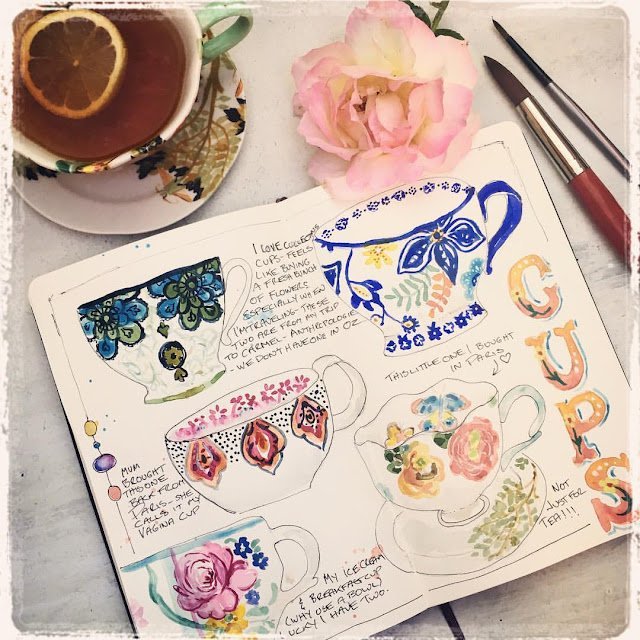 I LOVE COLLECTING
CUPS - FEELS
LIKE BUYING
A FRESH BUNCH
OF FLOWERS
ESPECIALLY WHEN
I'M TRAVELING - THESE
TWO ARE FROM MY TRIP
TO CARMEL - ANTHROPOLOGIE
- WE DON'T HAVE ONE IN OZ
THIS LITTLE ONE I BOUGHT
IN PARIS
CUPS
NOT
JUST FOR
TEA!!!
MUM
BROUGHT
THIS ONE
BACK FROM
PARIS - SHE
CALLS IT MY
VAGINA CUP
MY ICECREAM
& BREAKFAST CUP
(WHY USE A BOWL)
LUCKY I HAVE TWO.